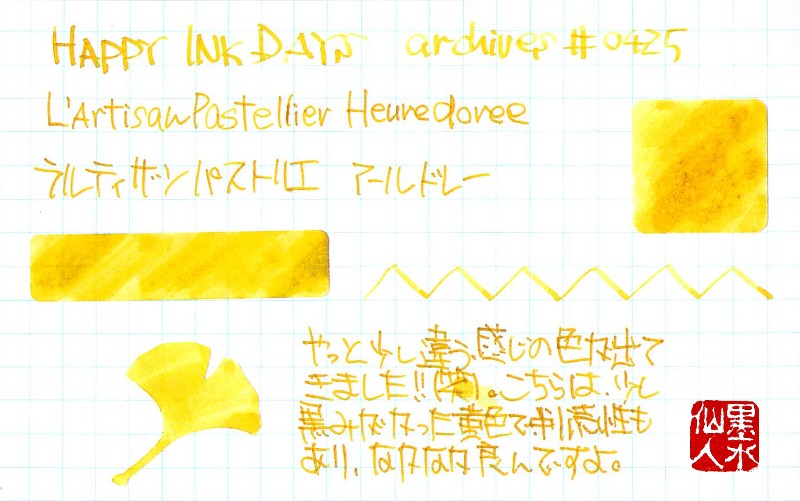 HAPPY INK DAYS archives #0425
L'ArtisanPastellier Heuredoree
ラルティザンパストルエ アールドレー
やっと少し違う感じの色が出て
きました!!(笑)。こちらは、少し
黒みがかった黄色で、視認性も
あり、なかなか良んですよ。
墨水
仙人